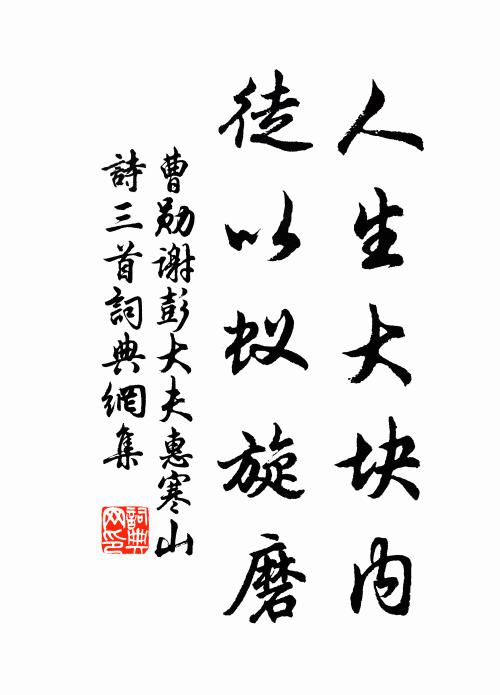 人生大块内
徒以蚁旋磨
曹勋谢彭大夫惠寒山
詩三首詞典網集
詞典网印